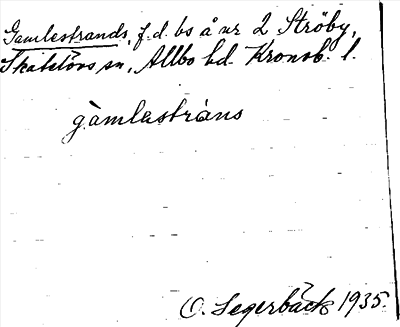 Gamlestrands, f.d. bs å nr 2 Ströby,
Skatelövs sn, Allbo hd. Kronob. l.
gàmlastràns
O. Segerbäck 1935.